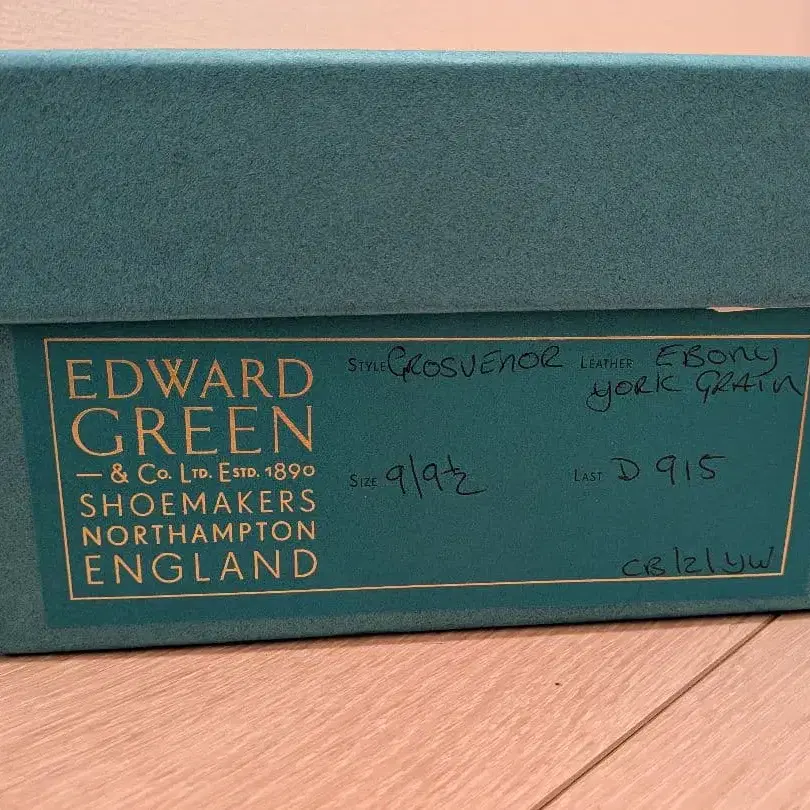 EDWARD
GREEN
— & Co. LTD. ESTD. 1890
SHOEMAKERS
NORTHAMPTON
ENGLAND
STYLE GROSVENOR
LEATHER EBONY
YORK GRAIN
SIZE 9/9½
LAST D 915
CB/2/YW